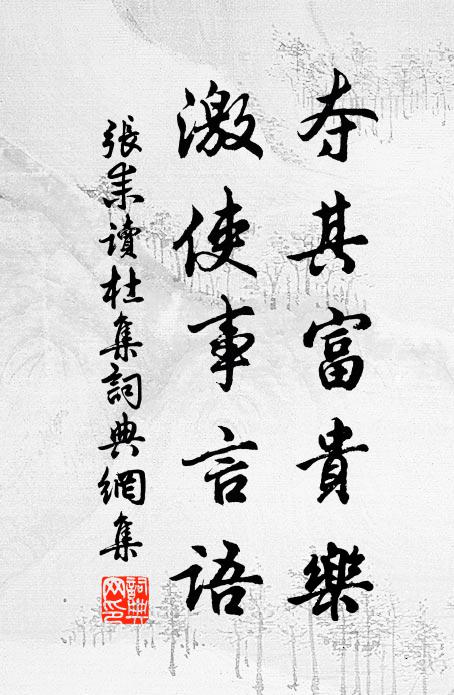 夺其富貴樂
激使事言語
張耒讀杜集詞典網集
詞典网印